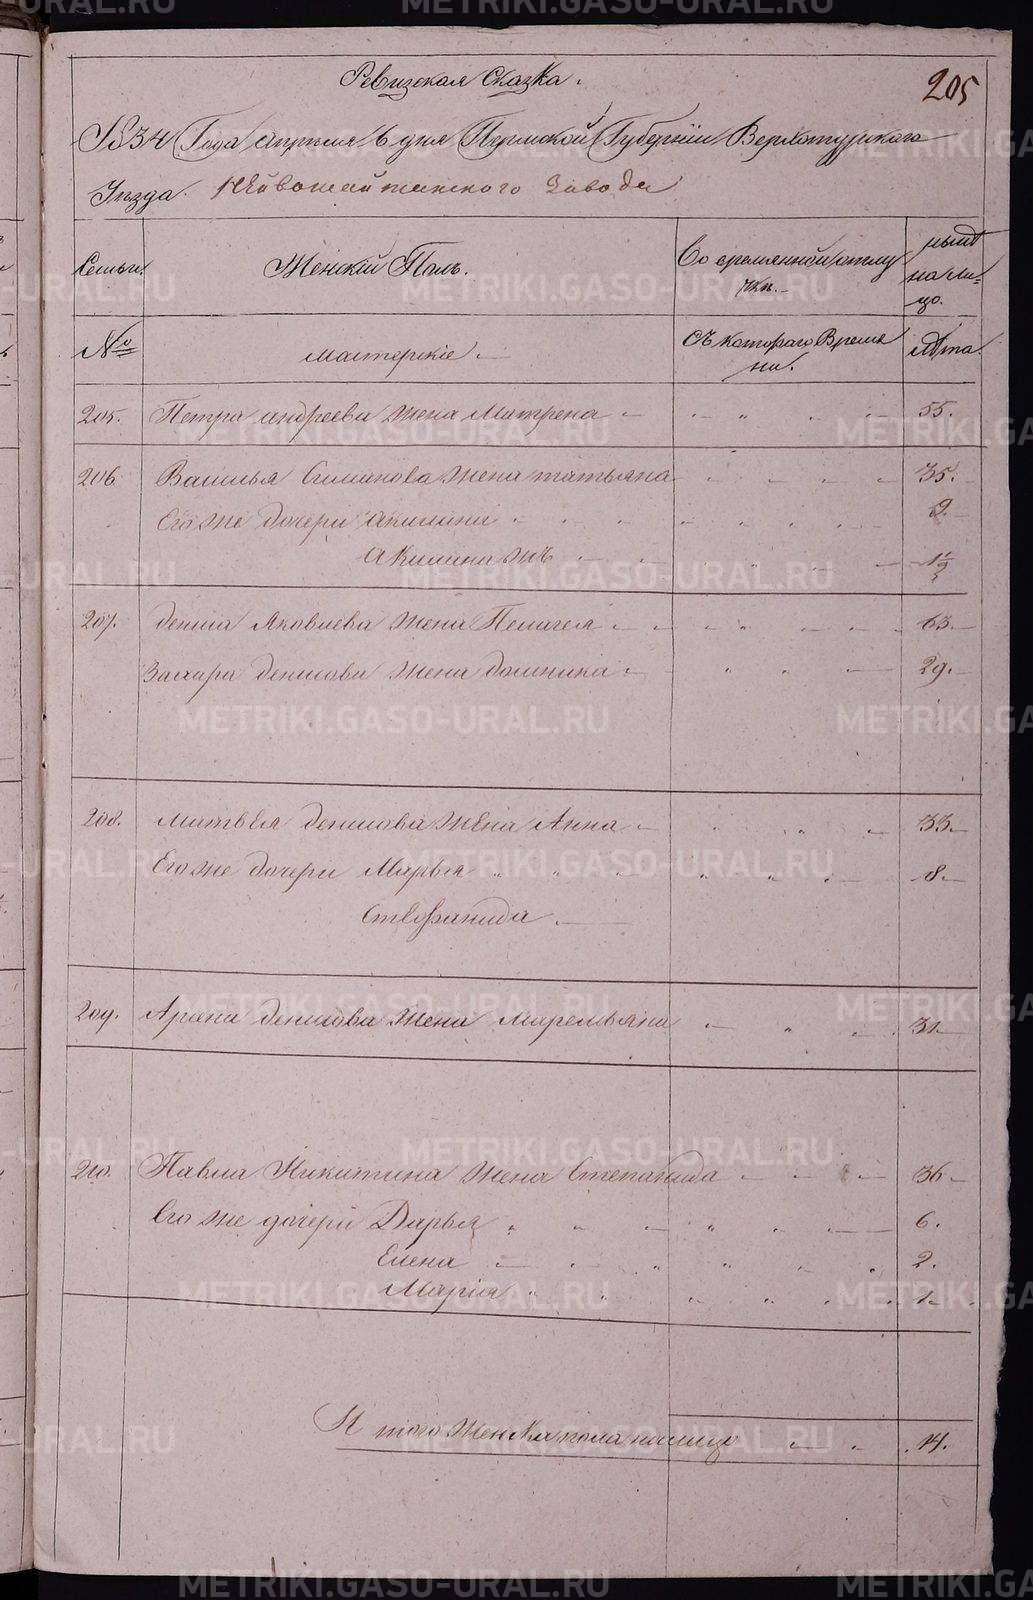 Ревизская Сказка.
205
1834 Года апреля 6 дня Пермской Губернiи Верхотурскаго
Уезда. Нейвошайтанского Завода
Семьи. Женскiй Полъ. Во временной отлу
чке.
ныне
на ли=
цо.
№ мастерскiе С котораго Време
ни.
лета.
205. Петра андреева жена Матрена 55.
206 Василья Симанова жена татьяна 35.
Его же дочери акилина 9.
Акилина жъ 1 1/2
207. дениса Яковлева жена Пелагея 63.
Захара денисова жена домника 29.
208. матвея денисова жена Анна 33.
Его же дочери Марья 8.
Стефанида
209. денисова жена 31.
210. Павла Никитина жена Степанида 36
Его же дочери Дарья 6.
Елена 2.
Марiя 1.
И того женска пола налицо 14.
METRIKI.GASO-URAL.RU